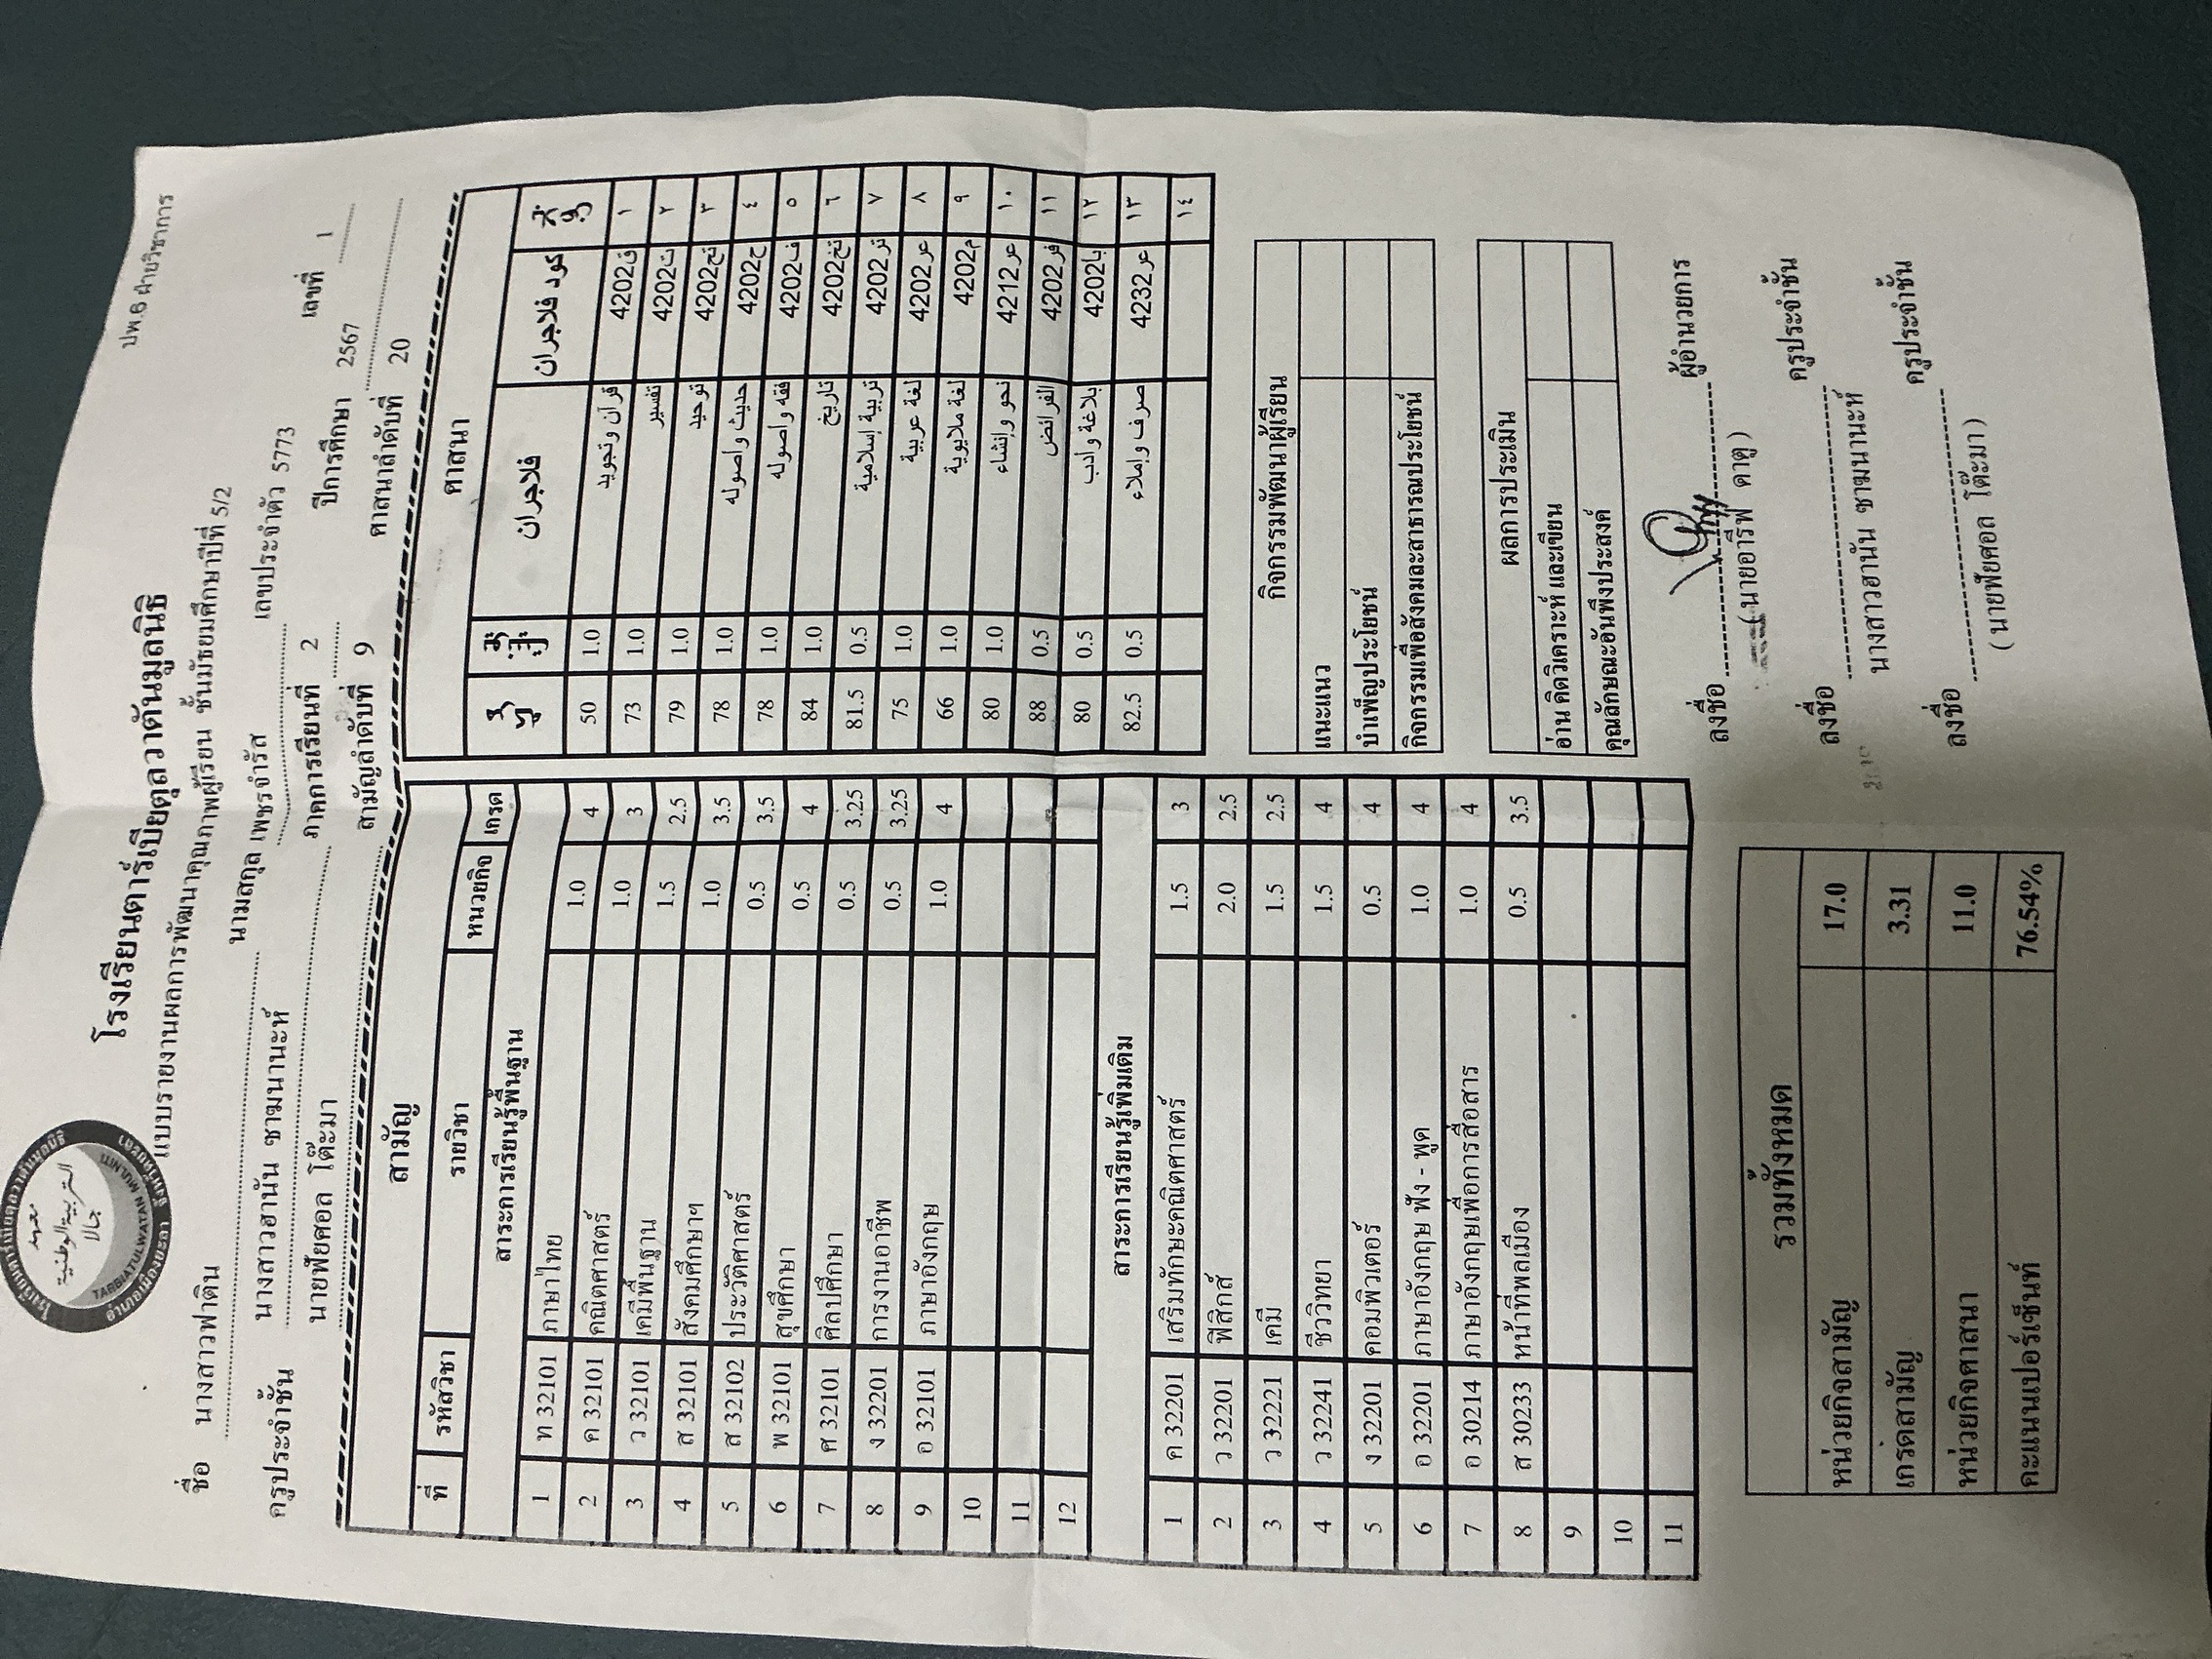 ปพ.6 ฝ่ายวิชาการ
โรงเรียนดาร์เบียตุลวาตันมูลนิธิ
แบบรายงานผลการพัฒนาคุณภาพผู้เรียน ชั้นมัธยมศึกษาปีที่ 5/2
ชื่อ นางสาวฟาติน นามสกุล เพชรจำรัส เลขประจำตัว 5773 เลขที่ 1
ครูประจำชั้น นางสาวฮานัน ชาฆนานะห์ ภาคการเรียนที่ 2 ปีการศึกษา 2567
นายฟัยศอล โต๊ะมา สามัญลำดับที่ 9 ศาสนาลำดับที่ 20
معهد
التربية الوطنية
جالا
TARBIATULWATAN MULNITI
สามัญ
ที่ รหัสวิชา รายวิชา หนวยกิจ เกรด
สาระการเรียนรู้พื้นฐาน
1 ท 32101 ภาษาไทย 1.0 4
2 ค 32101 คณิตศาสตร์ 1.0 3
3 ว 32101 เคมีพื้นฐาน 1.5 2.5
4 ส 32101 สังคมศึกษาฯ 1.0 3.5
5 ส 32102 ประวัติศาสตร์ 0.5 3.5
6 พ 32101 สุขศึกษา 0.5 4
7 ศ 32101 ศิลปศึกษา 0.5 3.25
8 ง 32201 การงานอาชีพ 0.5 3.25
9 อ 32101 ภาษาอังกฤษ 1.0 4
10
11
12
สาระการเรียนรู้เพิ่มเติม
1 ค 32201 เสริมทักษะคณิตศาสตร์ 1.5 3
2 ว 32201 ฟิสิกส์ 2.0 2.5
3 ว 32221 เคมี 1.5 2.5
4 ว 32241 ชีววิทยา 1.5 4
5 ง 32201 คอมพิวเตอร์ 0.5 4
6 อ 32201 ภาษาอังกฤษ ฟัง - พูด 1.0 4
7 อ 30214 ภาษาอังกฤษเพื่อการสื่อสาร 1.0 4
8 ส 30233 หน้าที่พลเมือง 0.5 3.5
9
10
11
รวมทั้งหมด
หน่วยกิจสามัญ 17.0
เกรดสามัญ 3.31
หน่วยกิจศาสนา 11.0
คะแนนเปอร์เซ็นท์ 76.54%
ศาสนา
فلاجران كود فلاجران
50 1.0 قرآن وتجويد ق4202 ١
73 1.0 تفسير ت4202 ٢
79 1.0 توحيد تح4202 ٣
78 1.0 حديث واصوله ح4202 ٤
78 1.0 فقه واصوله ف4202 ٥
84 1.0 تاريخ تخ4202 ٦
81.5 0.5 تربية إسلامية تر4202 ٧
75 1.0 لغة عربية عر4202 ٨
66 1.0 لغة ملايوية م4202 ٩
80 1.0 نحو وإنشاء عر4212 ١٠
88 0.5 الفرائض فر4202 ١١
80 0.5 بلاغة وادب با4202 ١٢
82.5 0.5 صرف وإملاء عر4232 ١٣
١٤
กิจกรรมพัฒนาผู้เรียน
แนะแนว
บำเพ็ญประโยชน์
กิจกรรมเพื่อสังคมละสาธารณประโยชน์
ผลการประเมิน
อ่าน คิดวิเคราะห์ และเขียน
คุณลักษณะอันพึงประสงค์
ลงชื่อ ผู้อำนวยการ
(นายอารีฟ คาตู)
ลงชื่อ ครูประจำชั้น
นางสาวฮานัน ชาฆนานะห์
ลงชื่อ ครูประจำชั้น
( นายฟัยศอล โต๊ะมา )